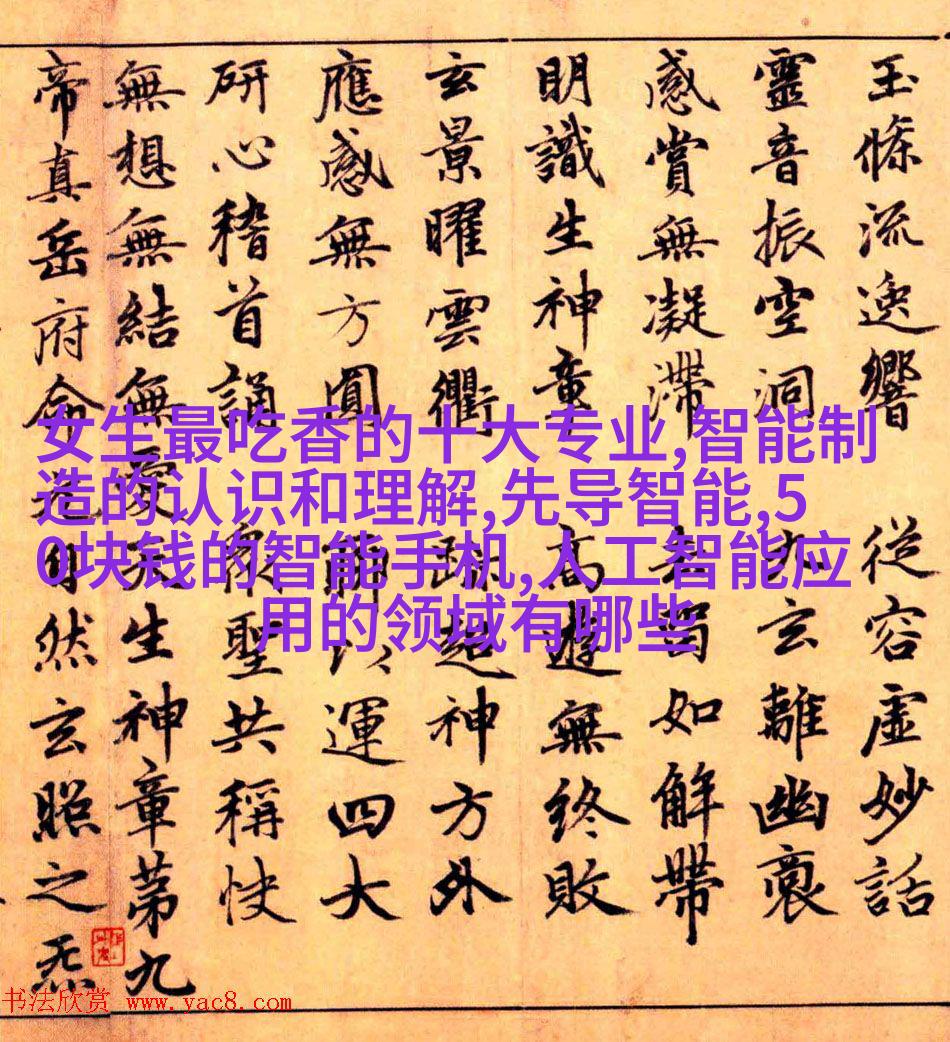 玉條流逸響 從容虛妙話
靈音振空洞 九玄離幽裒
感賞無凝滯 如解帶
明識生神章 高遊無終敗
玄景曜雲衢 跡超神方外
應感無方圓 聊以運四大
研心稽首誦 衆聖共稱快
無想無結無愛天生神章第九
帝真岳府命元自然玄照之炁
女生最吃香的十大专业,智能制
造的认识和理解,先导智能,5
0块钱的智能手机,人工智能应
用的领域有哪些
书法欣赏 www.yac8.com